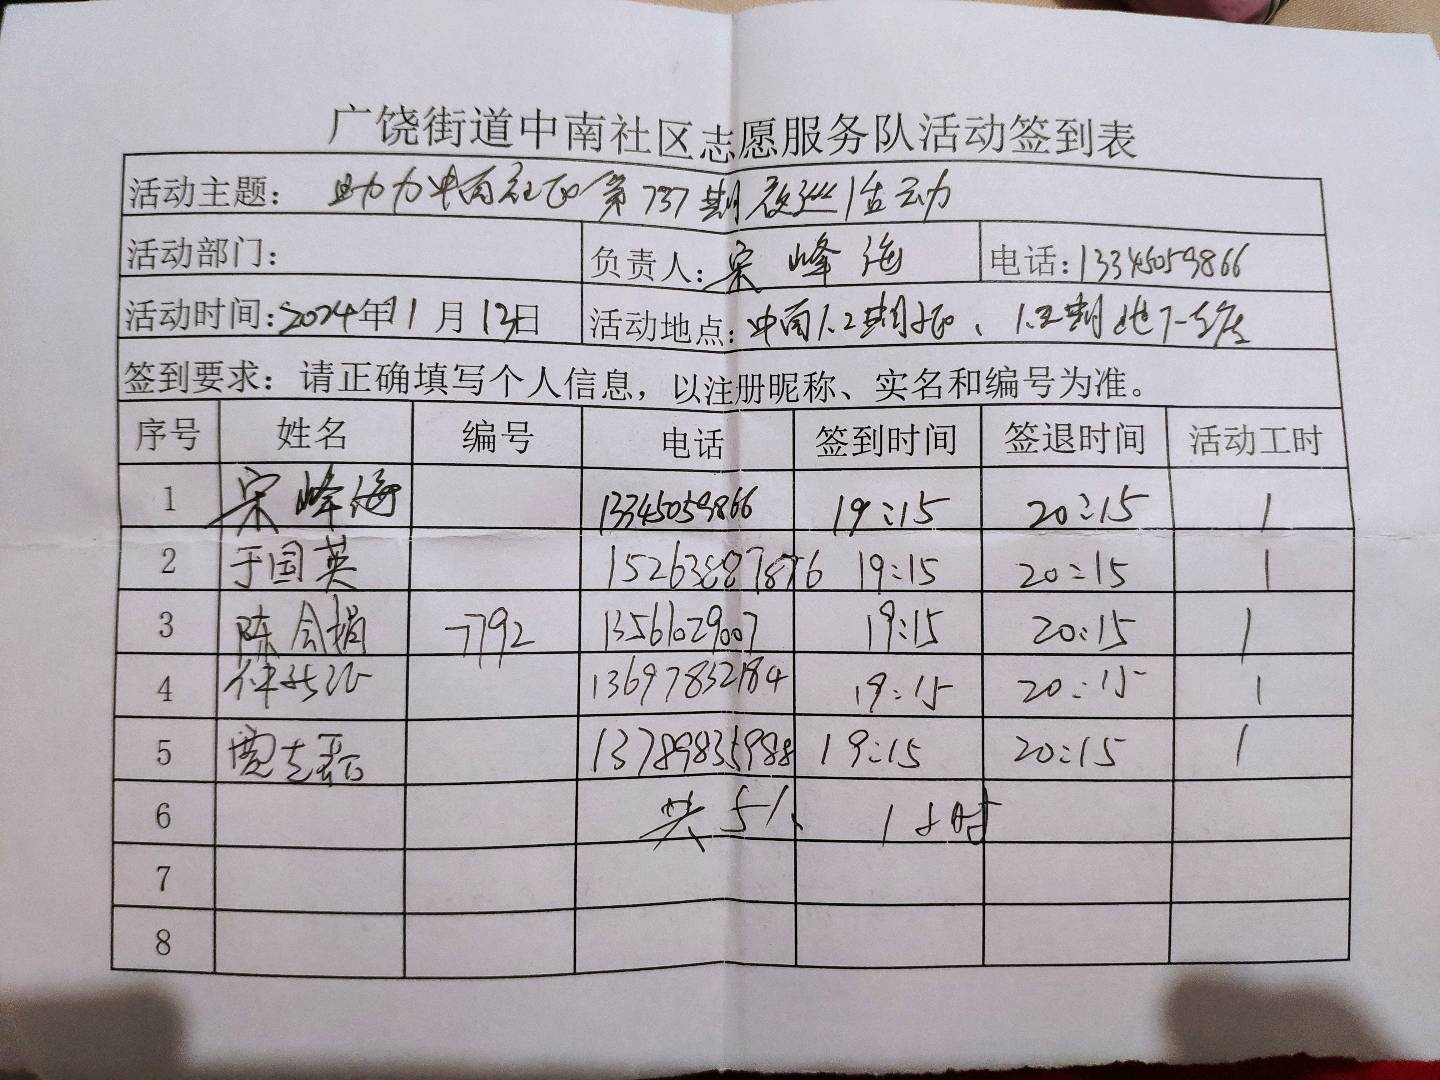 广饶街道中南社区志愿服务队活动签到表
活动主题: 助力中南社区第737期夜巡活动
活动部门: 负责人: 宋峰海 电话: 13345059866
活动时间: 2024年11月13日 活动地点: 中南1.2期 、1.2期地下车库
签到要求: 请正确填写个人信息，以注册昵称、实名和编号为准。
序号 姓名 编号 电话 签到时间 签退时间 活动工时
1 宋峰海 13345059866 19:15 20:15 1
2 于国英 19:15 20:15 1
3 陈会娟 7792 13561029007 19:15 20:15 1
4 13697832184 19:15 20:15 1
5 贾志磊 13789835988 19:15 20:15 1
6 共5人 1小时
7
8